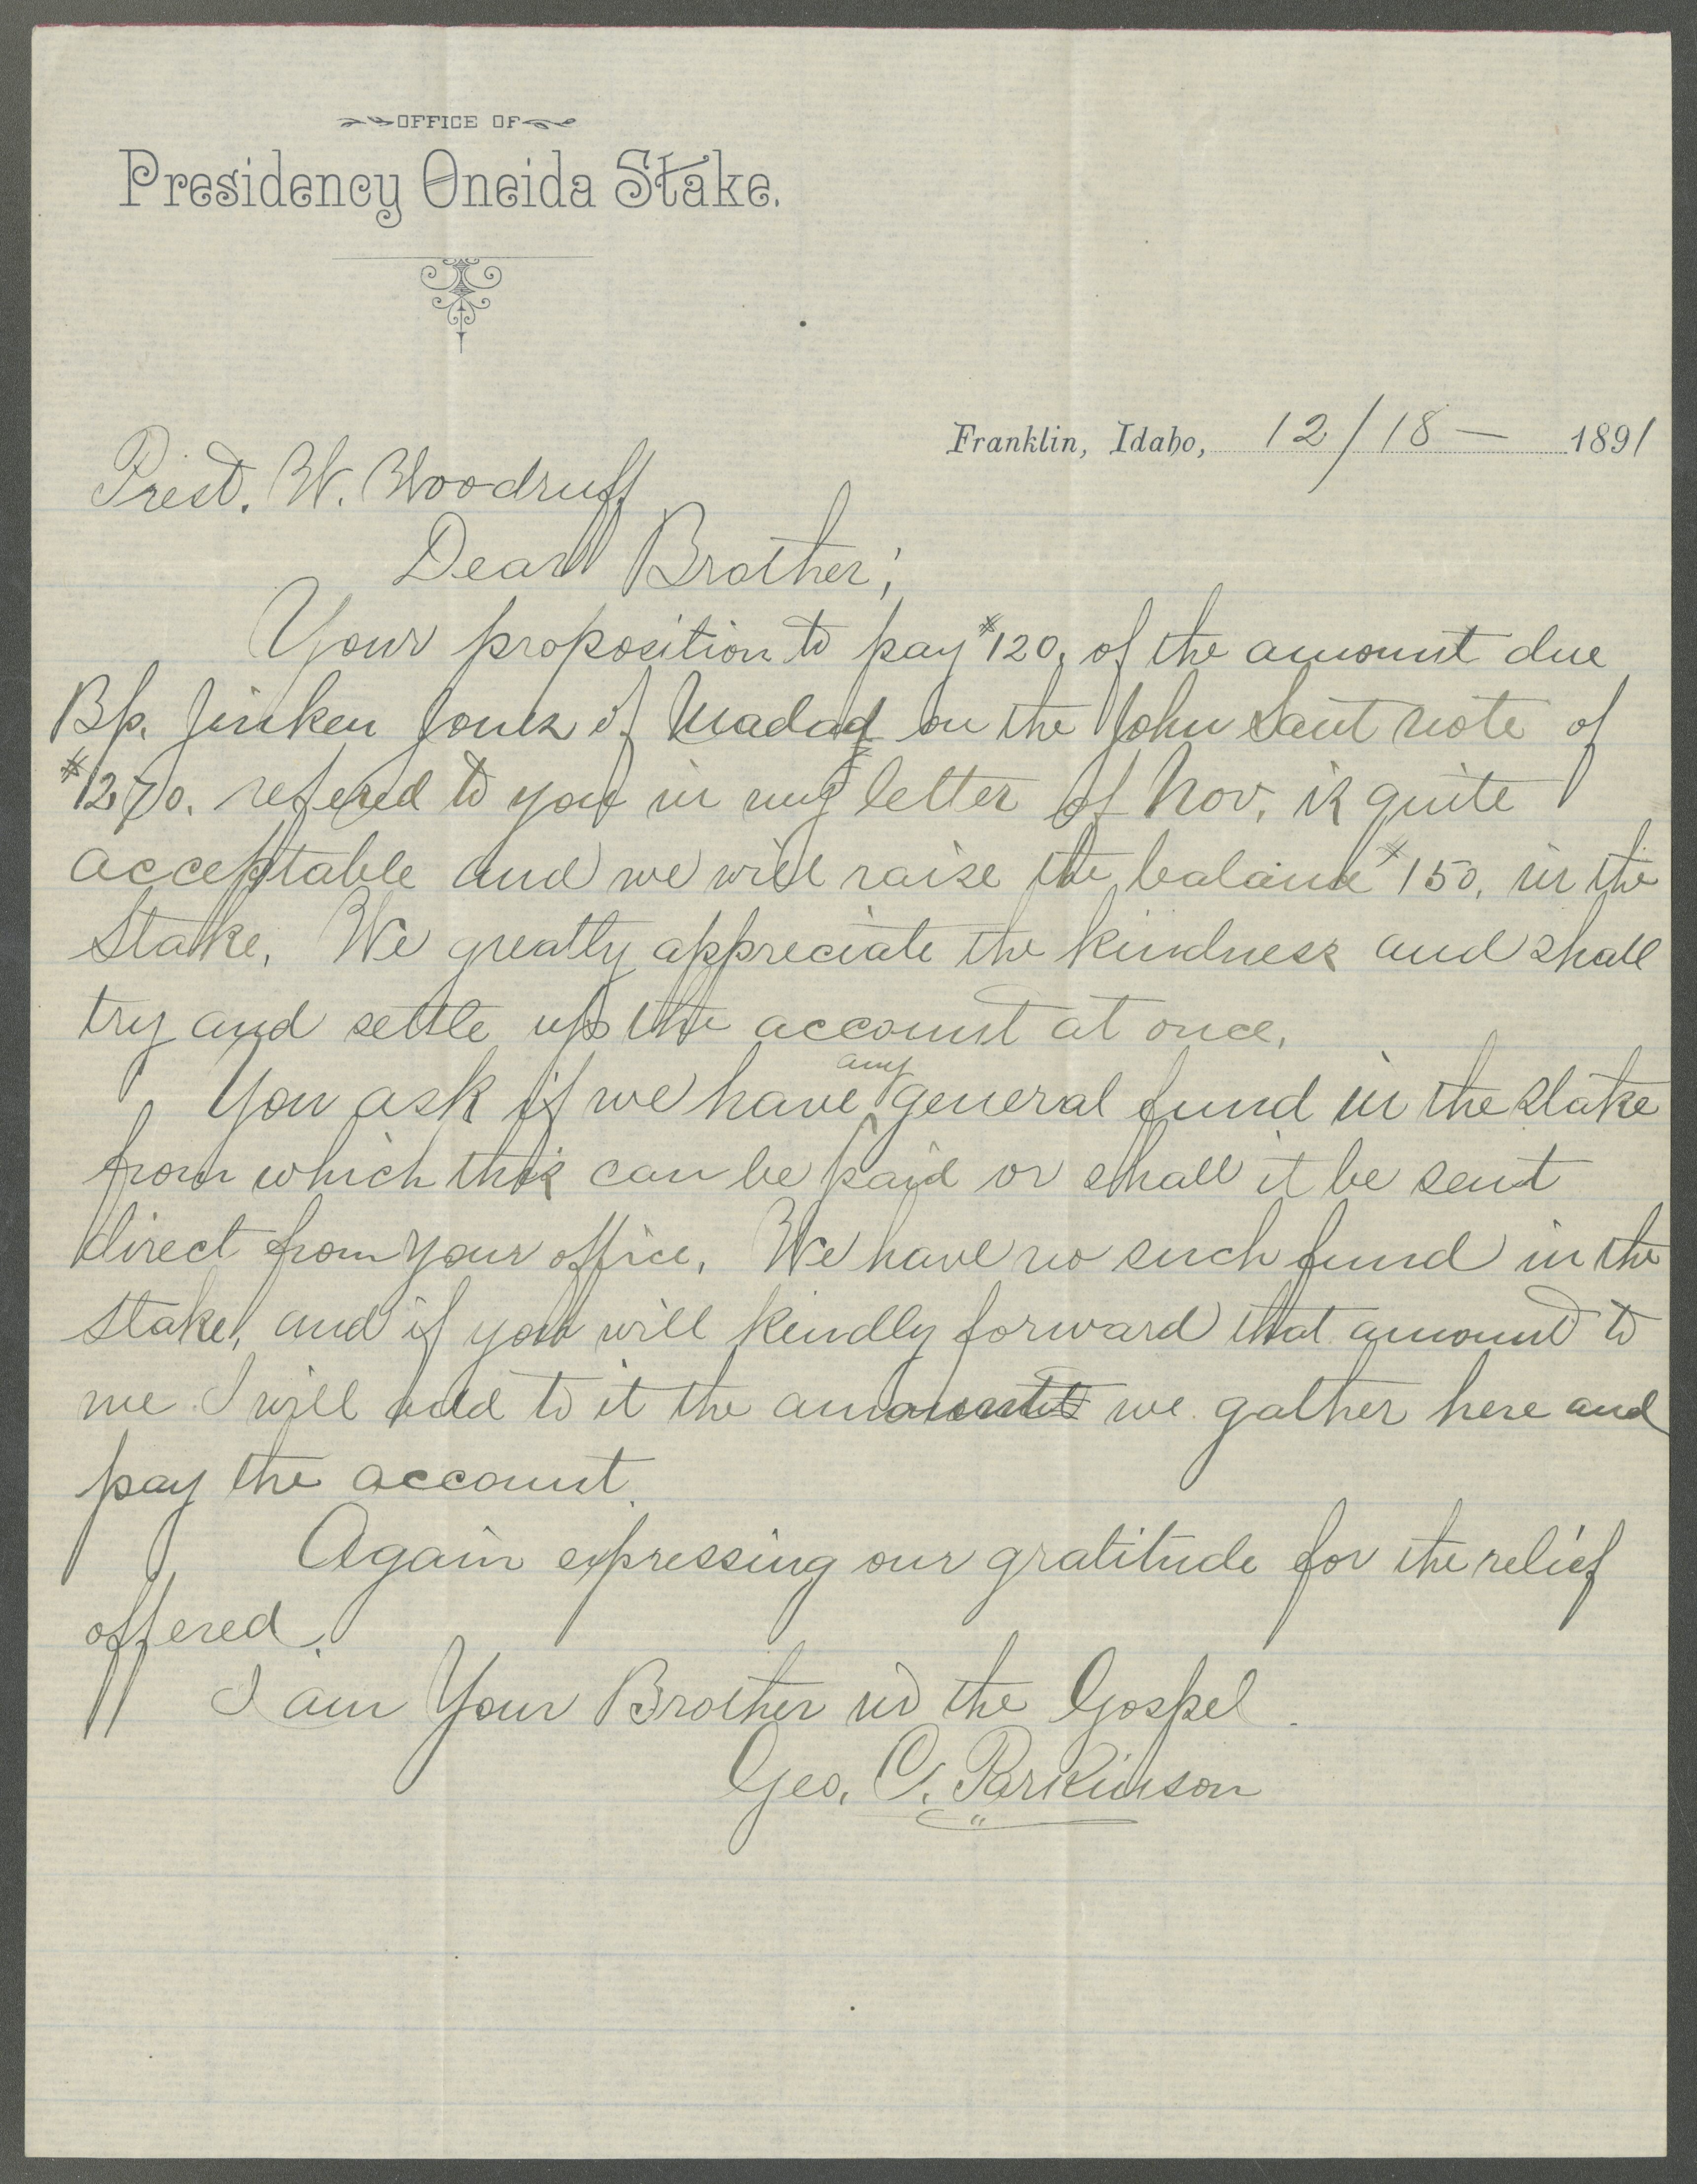 OFFICE OF
Presidency Oneida Stake.
Franklin, Idaho, 12/18— 1891
Prest. W. Woodruff
Dear Brother;
Your proposition to pay $120. of the amount due
Bp. Jinken Jones of Malad on the John Sant note of
$1270. refered to you in my letter of Nov. is quite
acceptable and we will raise the balance $150. in the
Stake. We greatly appreciate the kindness and shall
try and settle up the account at once.
You ask if we have any general fund in the Stake
from which this can be paid or shall it be sent
direct from your office. We have no such fund in the
Stake, and if you will kindly forward that amount to
me I will add to it the amount we gather here and
pay the account.
Again expressing our gratitude for the relief
offered.
I am Your Brother in the Gospel.
Geo. C. Parkinson